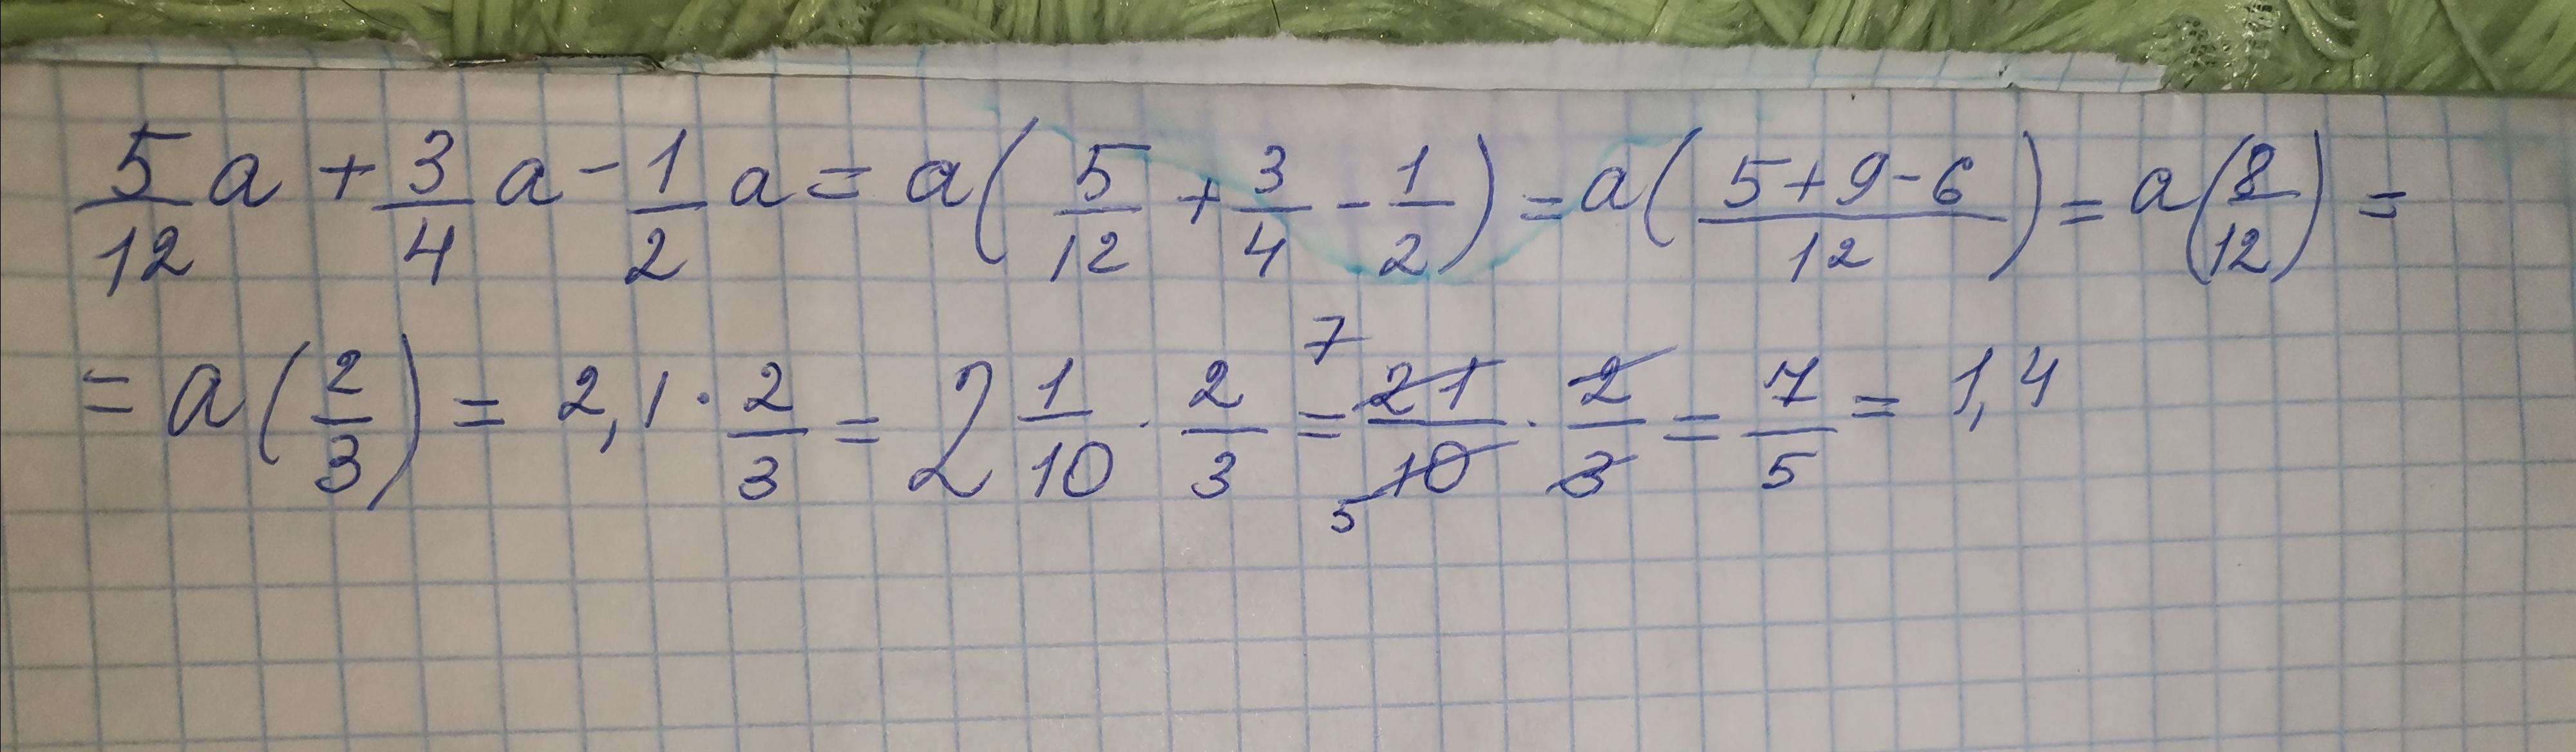 5/12 a + 3/4 a - 1/2 a = a(5/12 + 3/4 - 1/2) = a((5+9-6)/12) = a(8/12) =
= a(2/3) = 2,1 · 2/3 = 2 1/10 · 2/3 = 7 21/10 5 · 2/3 = 7/5 = 1,4